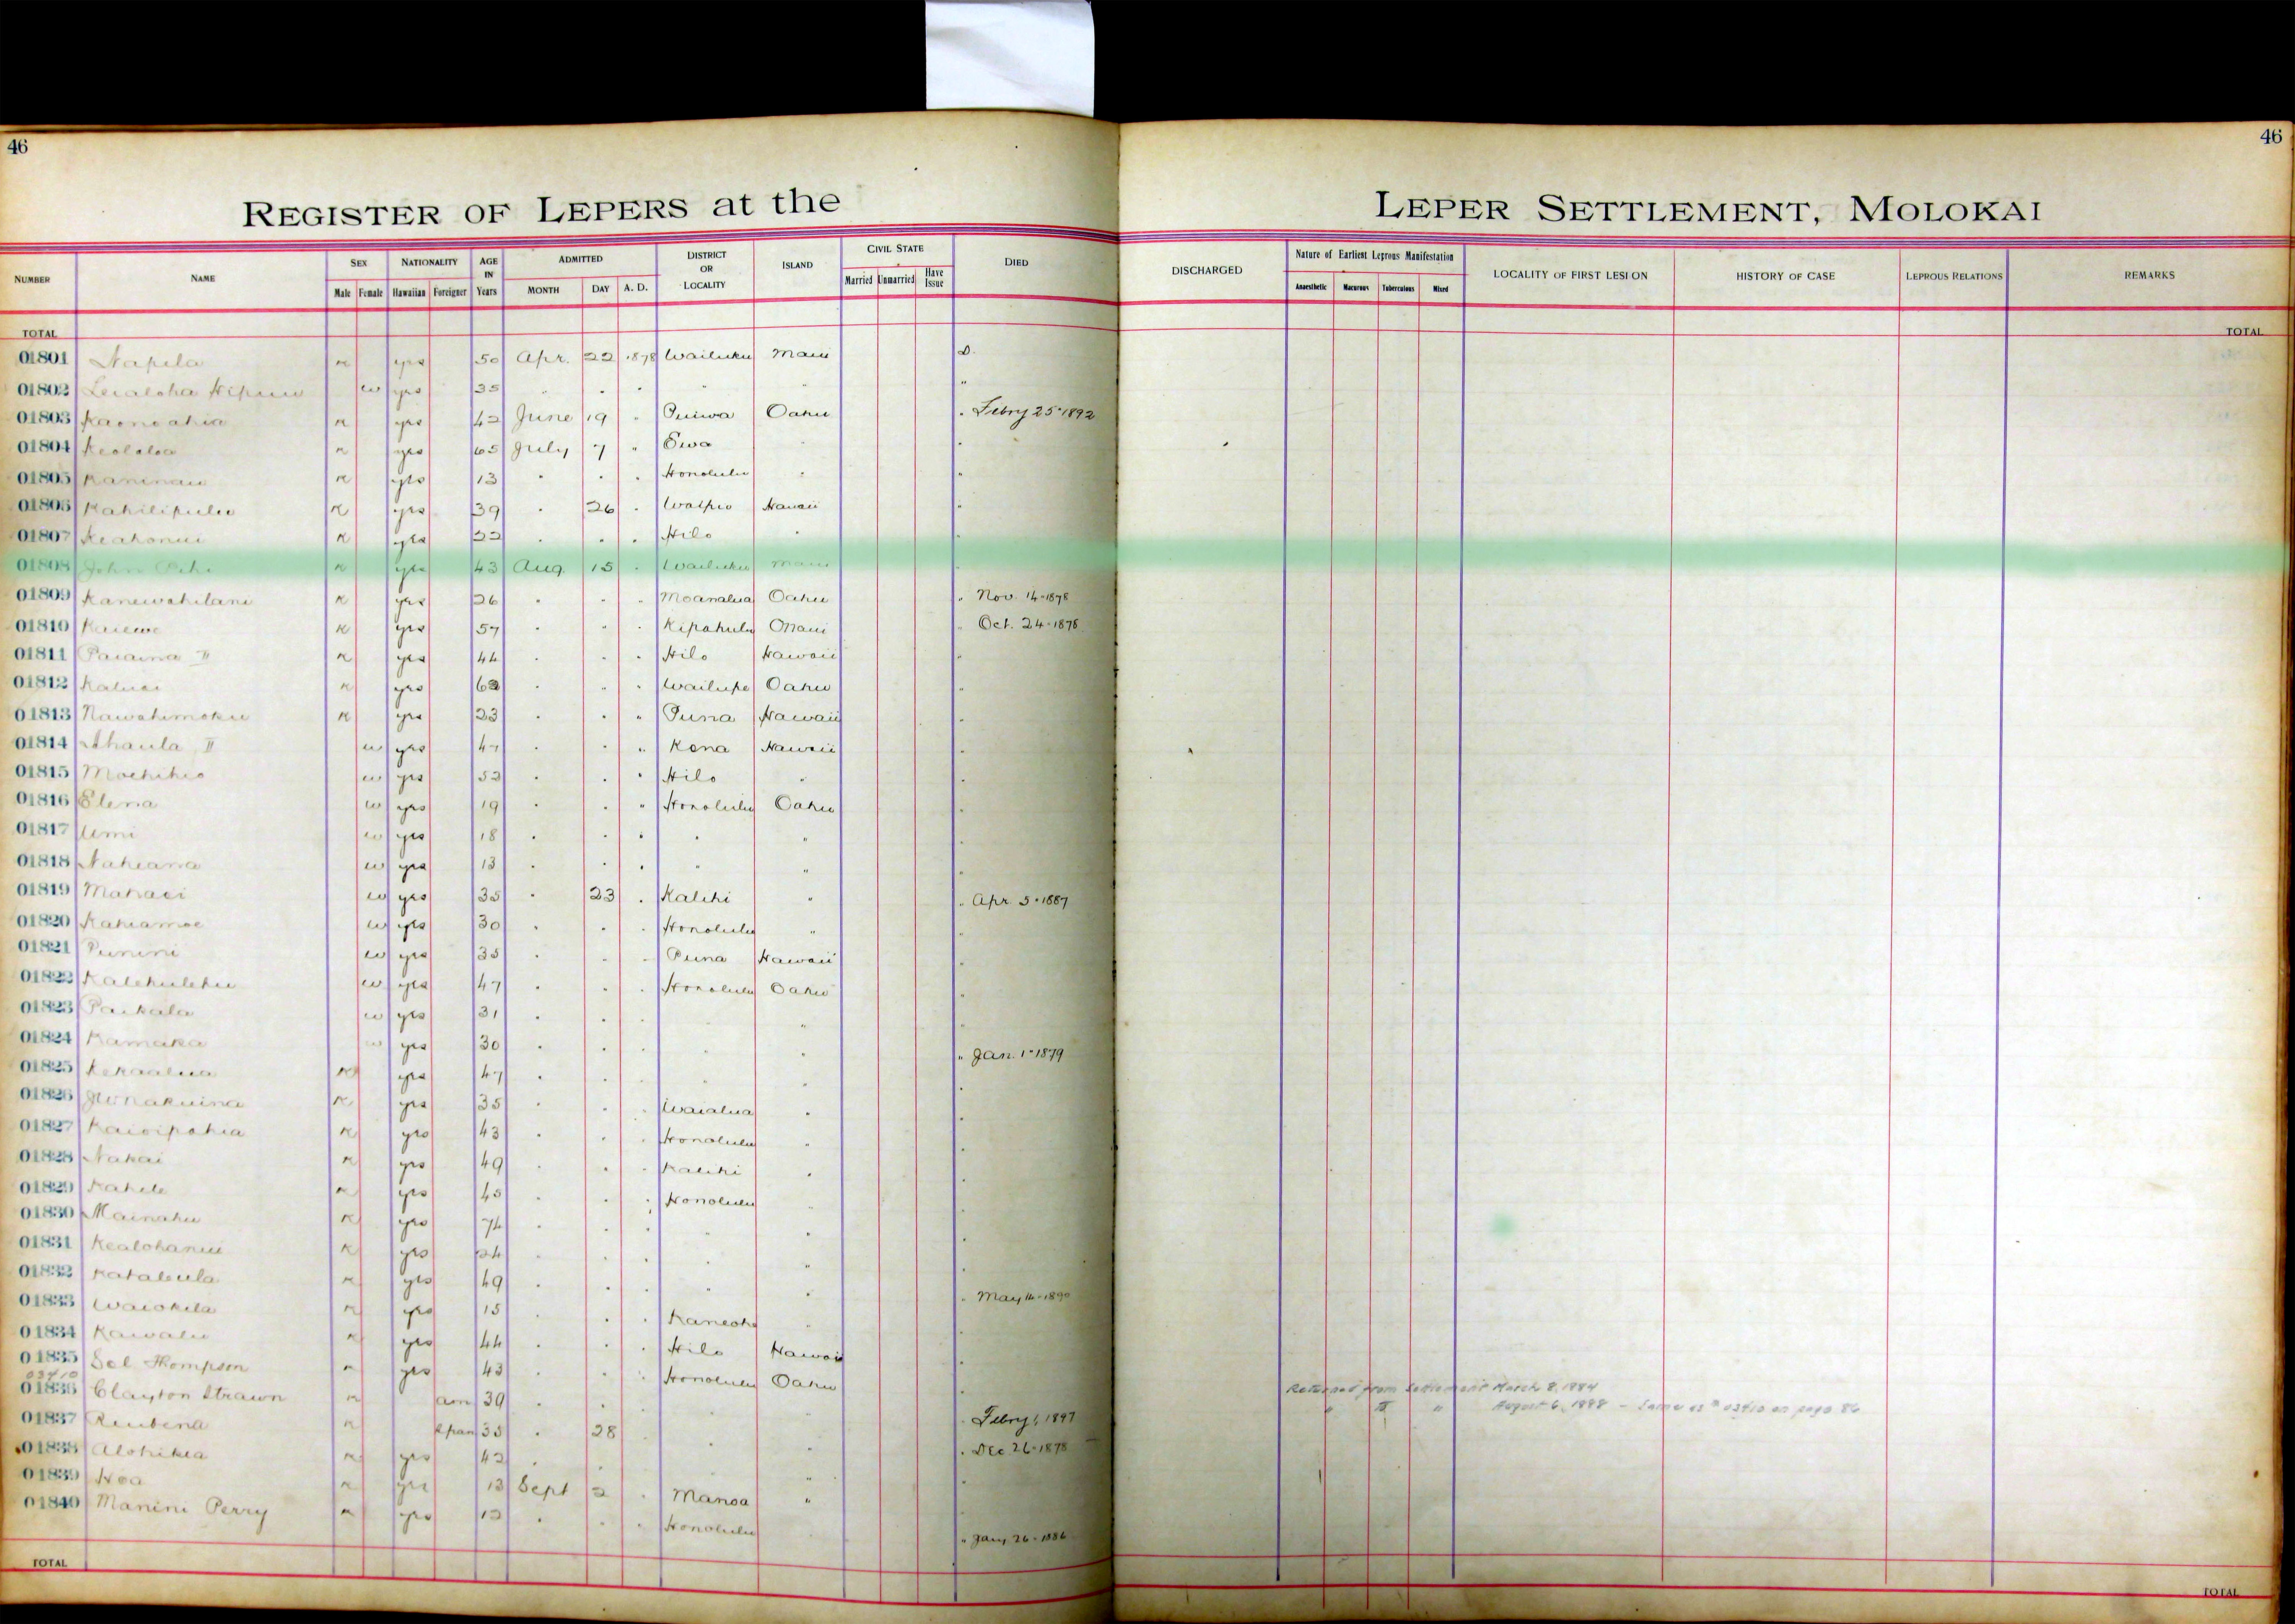 46
46
REGISTER OF LEPERS at the LEPER SETTLEMENT, MOLOKAI
NUMBER NAME SEX Male Female NATIONALITY Hawaiian Foreigner AGE IN Years ADMITTED MONTH DAY A. D. DISTRICT OR LOCALITY ISLAND CIVIL STATE Married Unmarried Have Issue DIED DISCHARGED Nature of Earliest Leprous Manifestation Anaesthetic Macurous Tuberculous Mixed LOCALITY OF FIRST LESION HISTORY OF CASE LEPROUS RELATIONS REMARKS
TOTAL TOTAL
01801 Napela m yes 50 Apr. 22 1878 Wailuku Maui D.
01802 Leialoha w yes 35 " " " " " "
01803 Kaonoahia m yes 42 June 19 " Puiwa Oahu " Febry 25 1892
01804 Keololoa m yes 65 July 7 " Ewa " "
01805 Kaninau m yes 13 " " " Honolulu " "
01806 Kahilipulu m yes 39 " 26 " Waipio Hawaii "
01807 Keahonui m yes 22 " " " Hilo " "
01808 John m yes 43 Aug. 15 " Wailuku Maui "
01809 Kanewahilani m yes 26 " " " Moanalua Oahu " Nov. 14-1878
01810 Kaiewe m yes 57 " " " Kipahulu Maui " Oct. 24-1878
01811 Paiaina II m yes 44 " " " Hilo Hawaii "
01812 Kaluai m yes 62 " " " Wailupe Oahu "
01813 Nawahimoku m yes 23 " " " Puna Hawaii "
01814 Ahaula II w yes 47 " " " Kona Hawaii "
01815 w yes 52 " " " Hilo " "
01816 Elena w yes 19 " " " Honolulu Oahu "
01817 Umi w yes 18 " " " " " "
01818 Nakeana w yes 13 " " " " " "
01819 Makaei w yes 35 " 23 " Kalihi " " Apr. 5-1887
01820 Kahiamoe w yes 30 " " " Honolulu " "
01821 Punini w yes 35 " " " Puna Hawaii "
01822 Kalehulehu w yes 47 " " " Honolulu Oahu "
01823 Paikala w yes 31 " " " " " "
01824 Kamaka w yes 30 " " " " " " Jan. 1-1879
01825 Kekaalua m yes 47 " " " " " "
01826 m yes 35 " " " Waialua " "
01827 Kaioipohia m yes 43 " " " Honolulu " "
01828 Nakai m yes 49 " " " Kalihi " "
01829 Kahele m yes 45 " " " Honolulu " "
01830 Mainahu m yes 74 " " " " " "
01831 Kealohanui m yes 24 " " " " " "
01832 Katalula m yes 49 " " " " " " May 14-1890
01833 Waiokila m yes 15 " " " Kaneohe " "
01834 Kawalu m yes 44 " " " Hilo Hawaii "
01835 Sol Thompson m yes 43 " " " Honolulu Oahu "
03410
01836 Clayton Strawn m am 39 " " " " " " Febry 1, 1897 Returned from Settlement March 8, 1884
" " " August 6, 1888 - Same as # 03410 on page 86
01837 Reubena m Span 35 " 28 " " " " Dec 26-1878
01838 Alohikea m yes 42 " " " " " "
01839 Hoa m yes 13 Sept 2 " Manoa " "
01840 Manini Perry m yes 12 " " " Honolulu " Jany 26-1886
TOTAL TOTAL